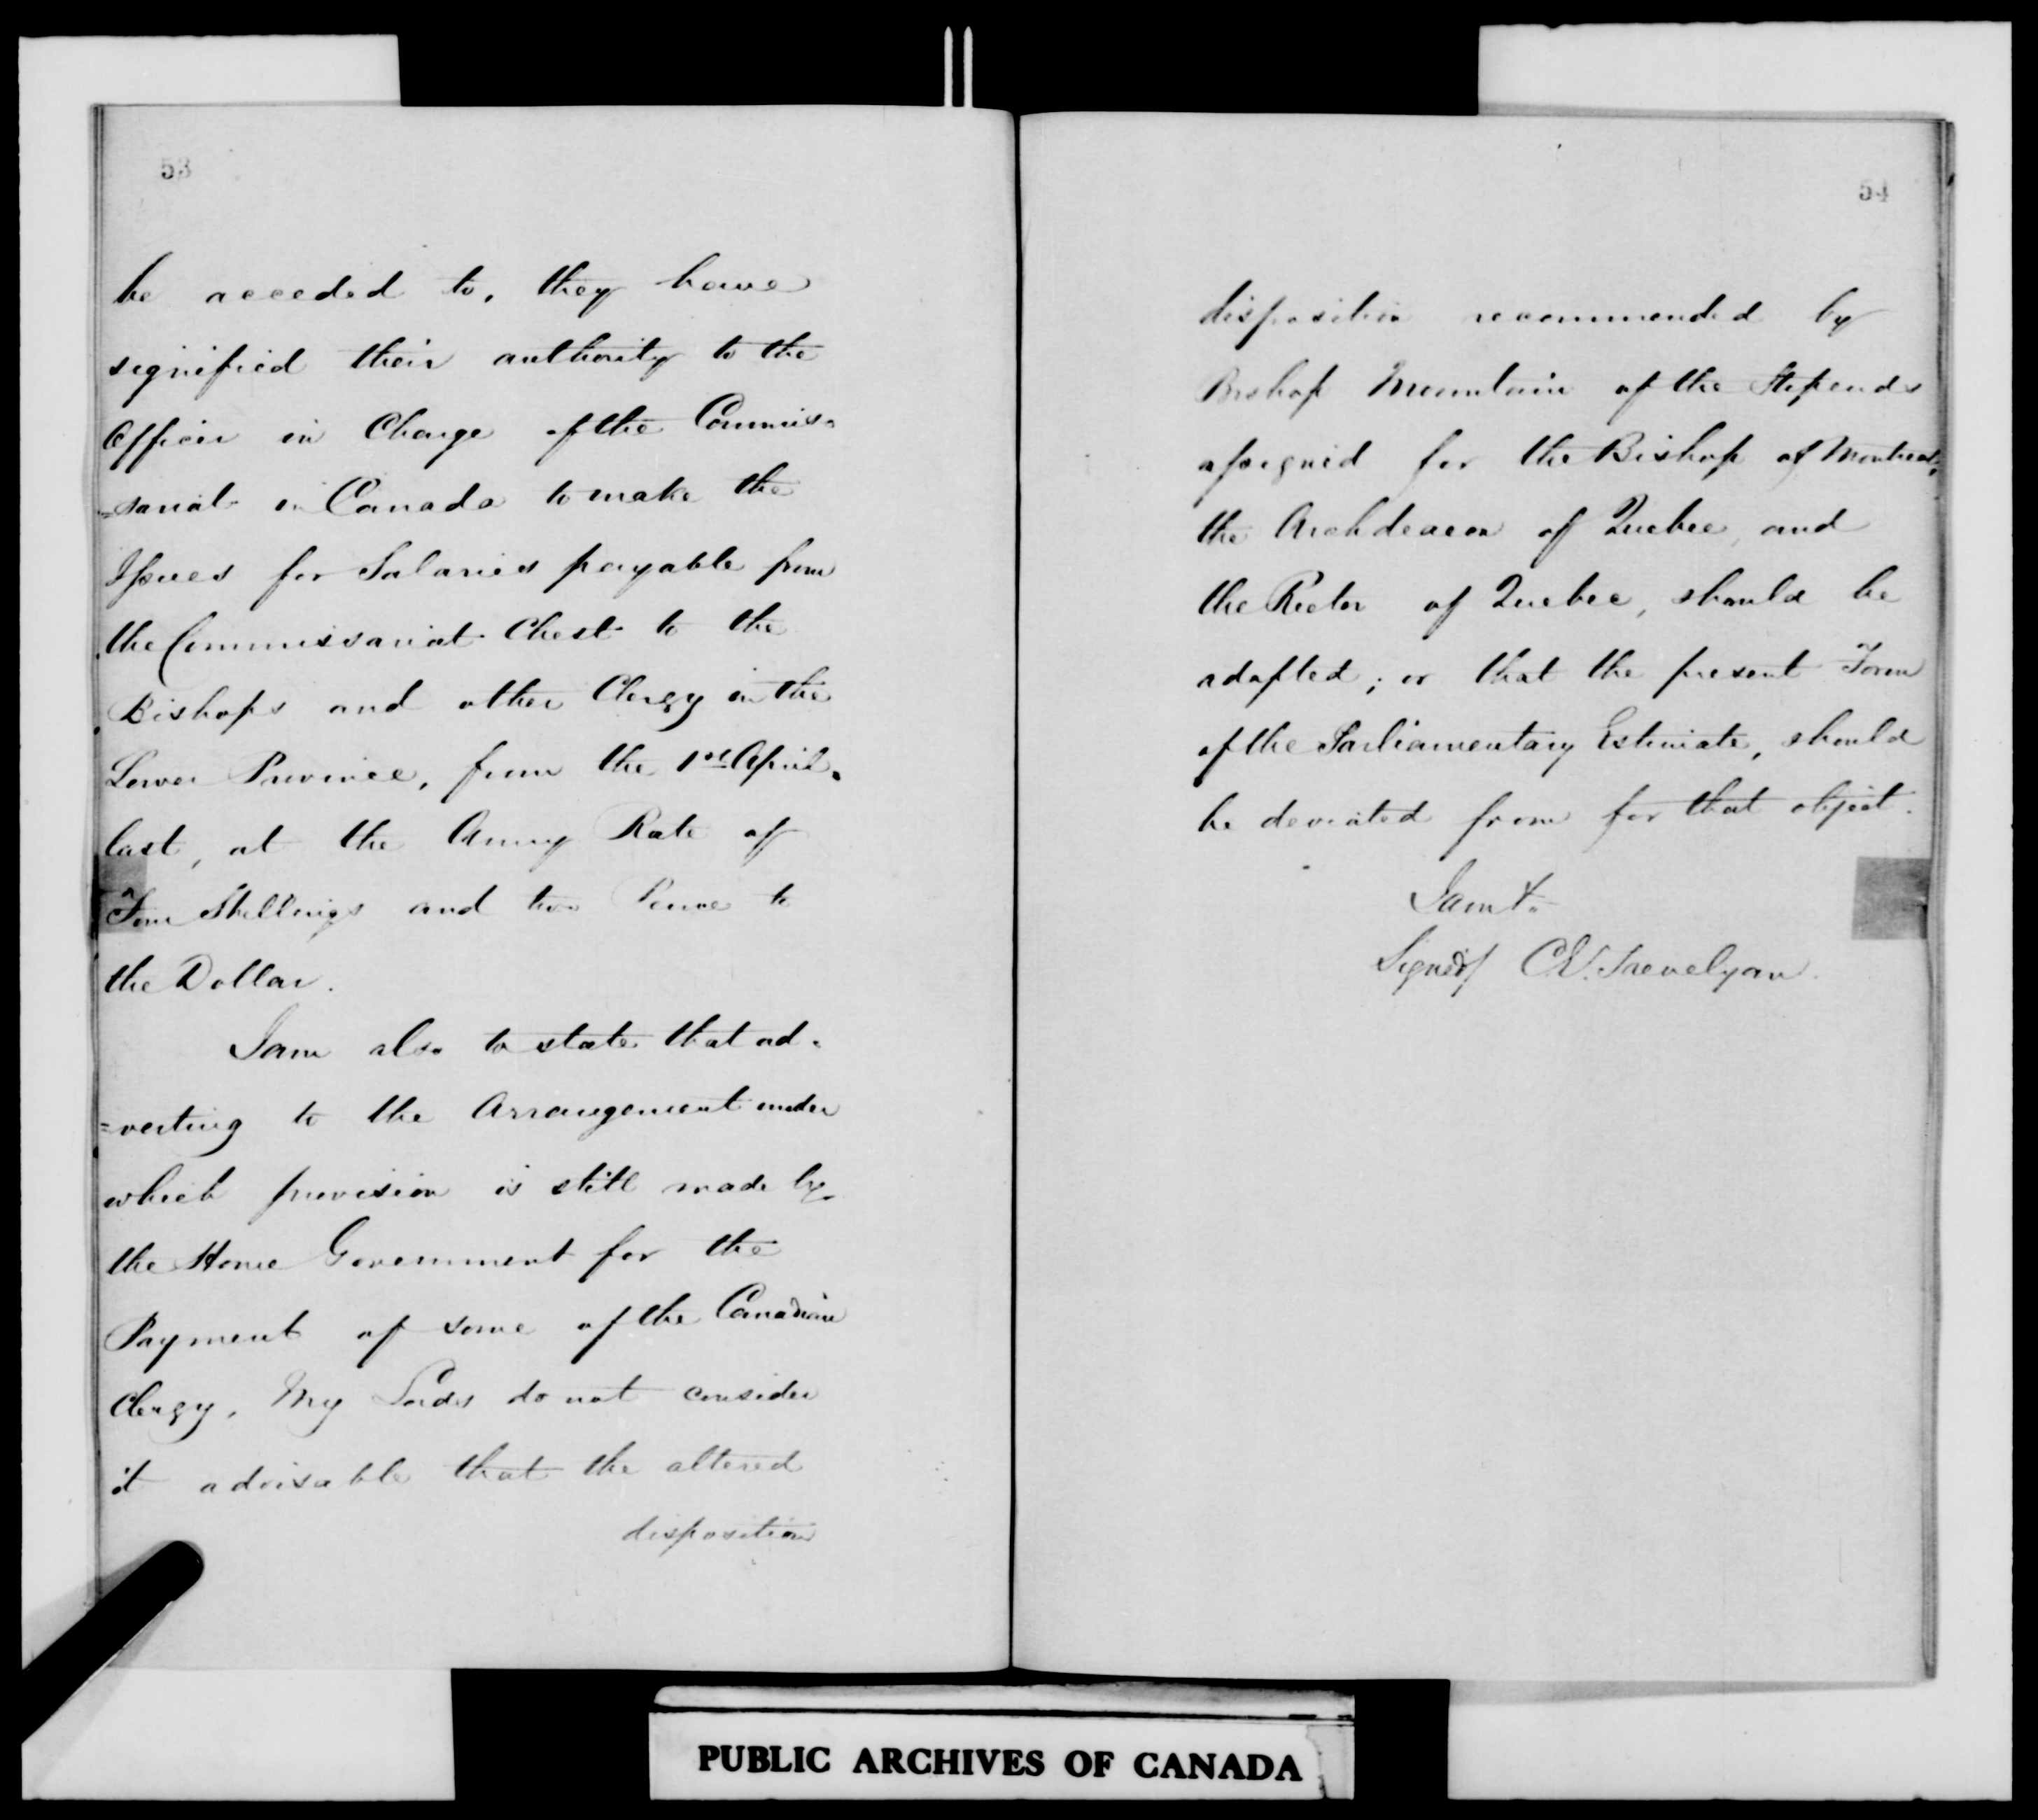 53
be acceded to, they have
signified their authority to the
Officer in Charge of the Commis=
=sariat in Canada to make the
Issues for Salaries payable from
the Commissariat Chest to the
Bishops and other Clergy in the
Lower Province, from the 1st April
last, at the Army Rate of
Four Shillings and two Pence to
the Dollar.
I am also to state that ad=
=verting to the Arrangement under
which provision is still made by
the Home Government for the
Payment of some of the Canadian
Clergy, My Lords do not consider
it advisable that the altered
disposition
54
disposition recommended by
Bishop Mountain of the Stipends
assigned for the Bishop of Montreal,
the Archdeacon of Quebec, and
the Rector of Quebec, should be
adopted; or that the present Form
of the Parliamentary Estimate, should
be deviated from for that object.
I am &.
Signed/ C.E. Trevelyan.
PUBLIC ARCHIVES OF CANADA